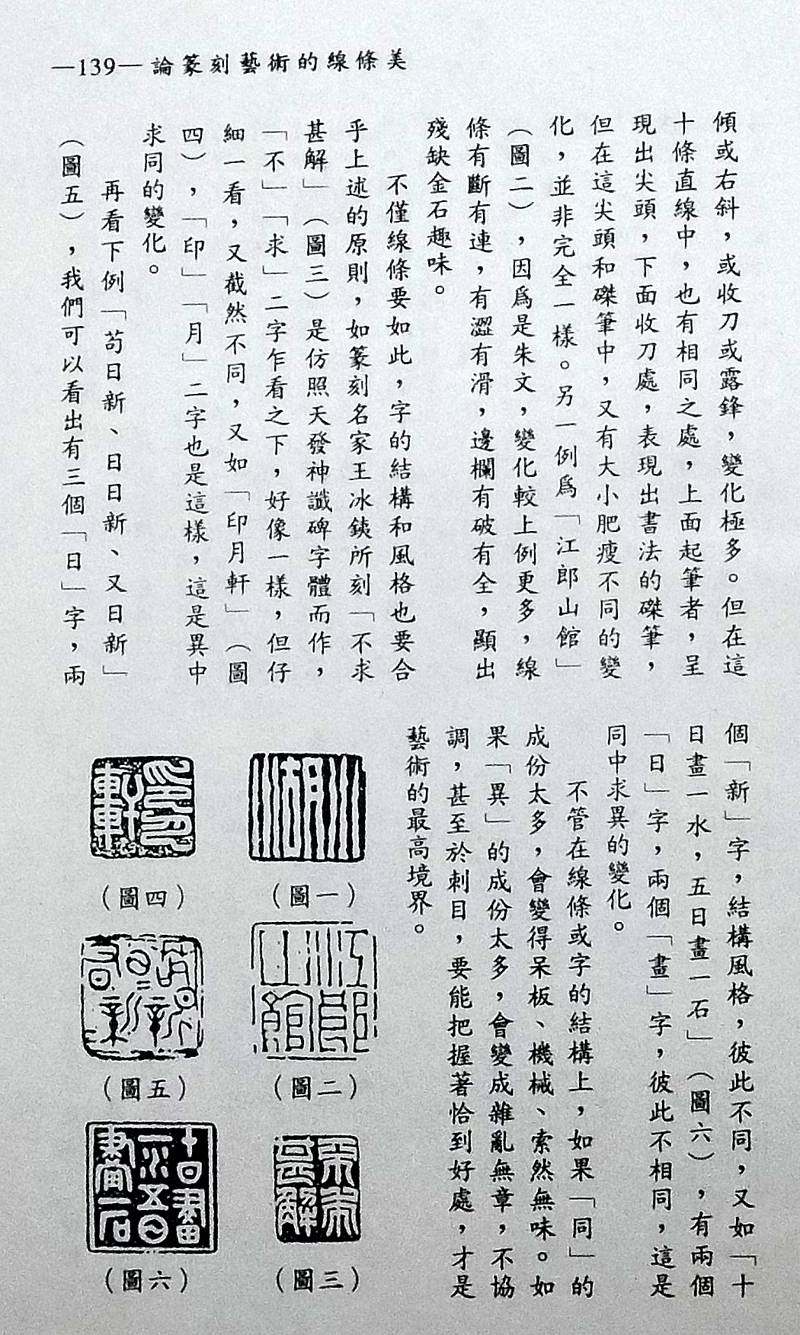 —139— 論篆刻藝術的線條美
傾或右斜，或收刀或露鋒，變化極多。但在這
十條直線中，也有相同之處，上面起筆者，呈
現出尖頭，下面收刀處，表現出書法的磔筆，
但在這尖頭和磔筆中，又有大小肥瘦不同的變
化，並非完全一樣。另一例為「江郎山館」
（圖二），因為是朱文，變化較上例更多，線
條有斷有連，有澀有滑，邊欄有破有全，顯出
殘缺金石趣味。
不僅線條要如此，字的結構和風格也要合
乎上述的原則，如篆刻名家王冰銕所刻「不求
甚解」（圖三）是仿照天發神讖碑字體而作，
「不」「求」二字乍看之下，好像一樣，但仔
細一看，又截然不同，又如「印月軒」（圖
四），「印」「月」二字也是這樣，這是異中
求同的變化。
再看下例「苟日新、日日新、又日新」
（圖五），我們可以看出有三個「日」字，兩
個「新」字，結構風格，彼此不同，又如「十
日畫一水，五日畫一石」（圖六），有兩個
「日」字，兩個「畫」字，彼此不相同，這是
同中求異的變化。
不管在線條或字的結構上，如果「同」的
成份太多，會變得呆板、機械、索然無味。如
果「異」的成份太多，會變成雜亂無章，不協
調，甚至於刺目，要能把握著恰到好處，才是
藝術的最高境界。
（圖一）
江郎
山館
（圖二）
不求
甚解
（圖三）
印月
軒
（圖四）
（圖五）
十日畫
一水五日
畫一石
（圖六）